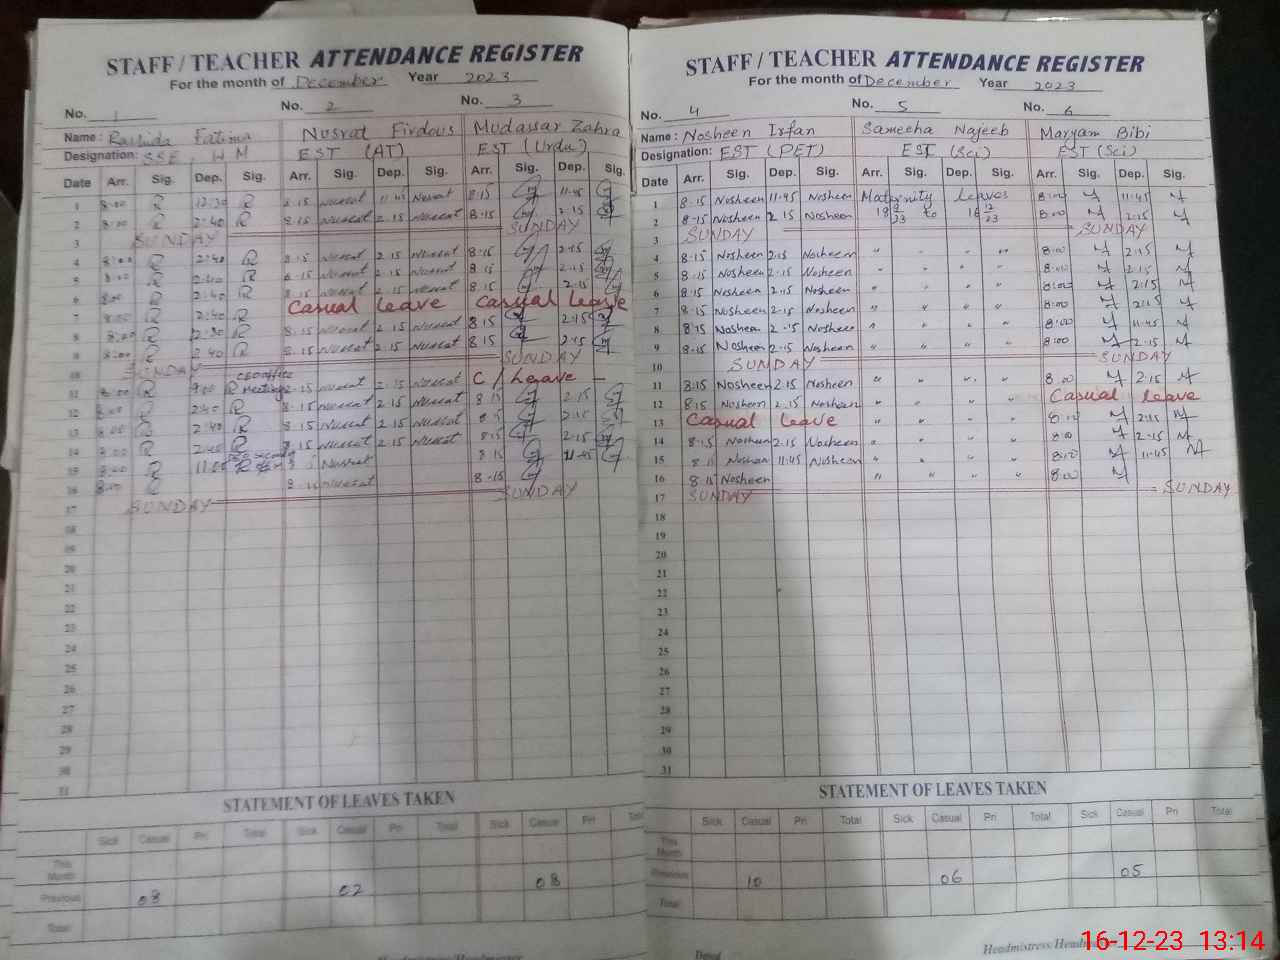 STAFF / TEACHER ATTENDANCE REGISTER
For the month of December Year 2023
No. 1 No. 2 No. 3
Name : Rashida Fatima Nusrat Firdous Mudassar Zahra
Designation: SSE, HM EST (AT) EST (Urdu)
Date Arr. Sig. Dep. Sig. Arr. Sig. Dep. Sig. Arr. Sig. Dep. Sig.
1 8:00 R 12:30 R 8.15 Nusrat 11.45 Nusrat 8.15 11.45
2 8:00 R 2:40 R 8.15 Nusrat 2.15 Nusrat 8.15 2.15
3 SUNDAY SUNDAY
4 8:00 R 2:40 R 8.15 Nusrat 2.15 Nusrat 8.15 2.15
5 8:00 R 2:40 R 8.15 Nusrat 2.15 Nusrat 8.15 2.15
6 8:00 R 2:40 R 8.15 Nusrat 2.15 Nusrat 8.15 2.15
7 8:00 R 2:40 R Casual leave Casual leave
8 8:00 R 12:30 R 8.15 Nusrat 2.15 Nusrat 8.15 2.15
9 8:00 R 2:40 R 8.15 Nusrat 2.15 Nusrat 8.15
10 SUNDAY SUNDAY
11 8:00 R 9:00 R Meeting 8.15 Nusrat 2.15 Nusrat C/Leave
12 8:00 R 2:40 R 8.15 Nusrat 2.15 Nusrat 8.15 2.15
13 8:00 R 2:40 R 8.15 Nusrat 2.15 Nusrat 8.15 2.15
14 8:00 R 2:45 R 8.15 Nusrat 2.15 Nusrat 8.15 2.15
15 8:00 R 11:00 Nusrat 8.15 11.45
16 8:00 R Nusrat 8.15
17 SUNDAY SUNDAY
18
19
20
21
22
23
24
25
26
27
28
29
30
31
STATEMENT OF LEAVES TAKEN
Sick Casual Pri Total Sick Casual Pri Total Sick Casual Pri Total
This Month
Previous 08 02 08
Total
Headmistress/Headmaster
STAFF / TEACHER ATTENDANCE REGISTER
For the month of December Year 2023
No. 4 No. 5 No. 6
Name : Nosheen Irfan Sameeha Najeeb Maryam Bibi
Designation: EST (PET) EST (Sci) EST (Sci)
Date Arr. Sig. Dep. Sig. Arr. Sig. Dep. Sig. Arr. Sig. Dep. Sig.
1 8.15 Nosheen 11.45 Nosheen Maternity Leaves 8:00 M 11.45 M
2 8.15 Nosheen 2.15 Nosheen to 8:00 M 2.15 M
3 SUNDAY SUNDAY
4 8.15 Nosheen 2.15 Nosheen " " " " 8:00 M 2.15 M
5 8.15 Nosheen 2.15 Nosheen " " " " 8:00 M 2.15 M
6 8.15 Nosheen 2.15 Nosheen " " " " 8:00 M 2.15 M
7 8.15 Nosheen 2.15 Nosheen " " " " 8:00 M 2.15 M
8 8.15 Nosheen 2.15 Nosheen " " " " 8:00 M 11.45 M
9 8.15 Nosheen 2.15 Nosheen " " " " 8:00 M 2.15 M
10 SUNDAY SUNDAY
11 8.15 Nosheen 2.15 Nosheen " " " " 8:00 M 2.15 M
12 8.15 Nosheen 2.15 Nosheen " " " " Casual leave
13 Casual leave " " " " M 2.15 M
14 8.15 Nosheen 2.15 Nosheen " " " " 8:00 M 2.15 M
15 Nosheen 11.45 Nosheen " " " " 8:00 M 11.45 M
16 8.15 Nosheen " " " " 8:00 M
17 SUNDAY SUNDAY
18
19
20
21
22
23
24
25
26
27
28
29
30
31
STATEMENT OF LEAVES TAKEN
Sick Casual Pri Total Sick Casual Pri Total Sick Casual Pri Total
This Month
Previous 10 06 05
Total
Headmistress/Headmaster
16-12-23 13:14